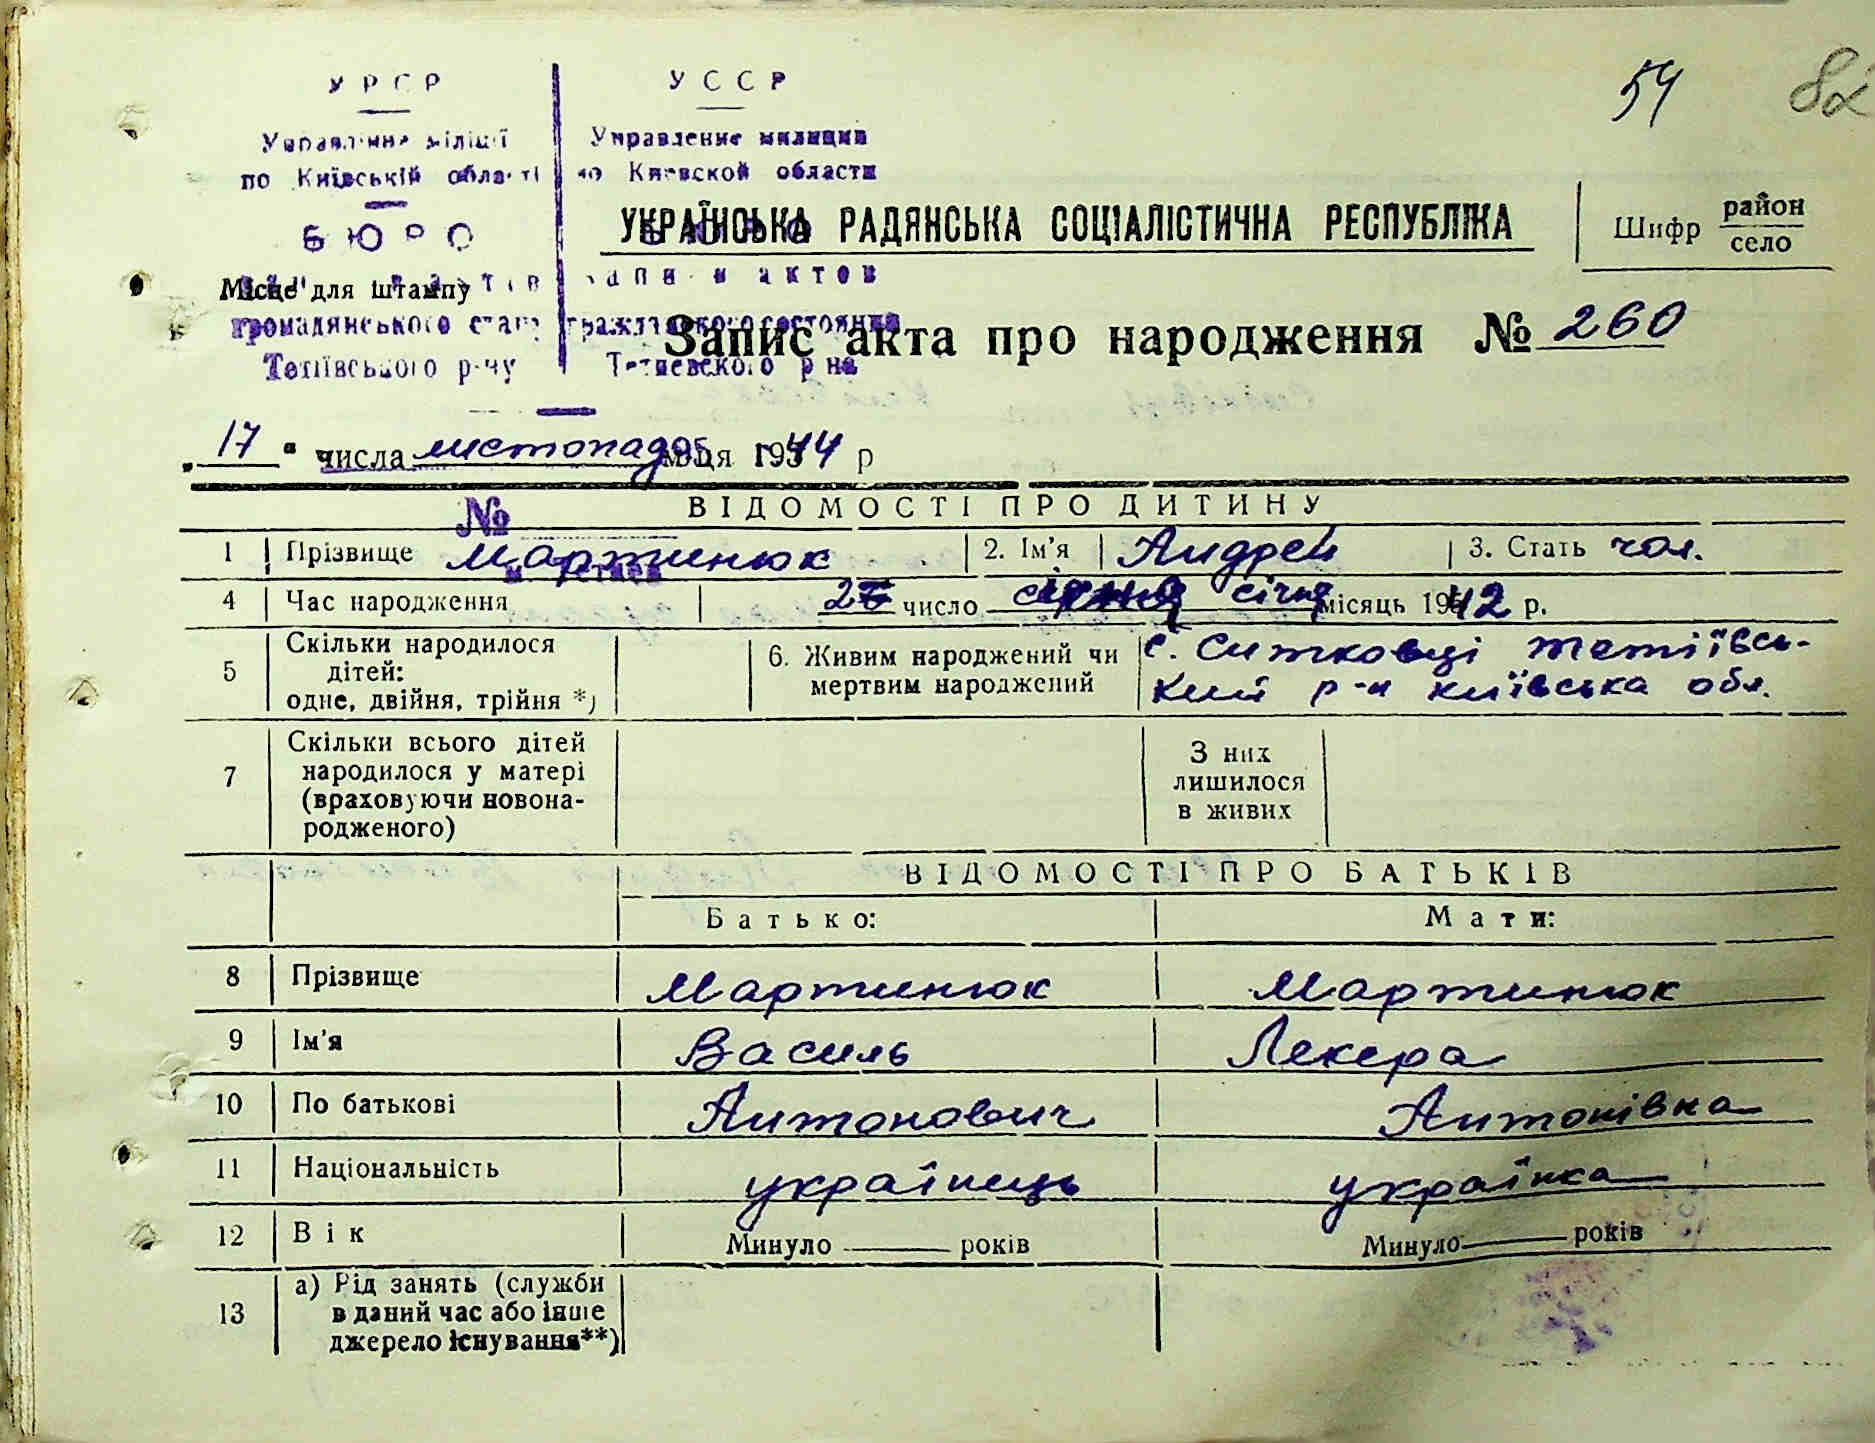 54 82
УРСР
Управління міліції
по Київській області
БЮРО
громадянського стану
Тетіївського р-ну
УССР
Управление милиции
по Киевской области
записи актов
гражданского состояния
Тетиевского р на
УКРАЇНСЬКА РАДЯНСЬКА СОЦІАЛІСТИЧНА РЕСПУБЛІКА
Шифр район
село
Місце для штампу
Запис акта про народження № 260
„ 17 " числа листопада м-ця 1944 р
№
ВІДОМОСТІ ПРО ДИТИНУ
1 Прізвище Мартинюк 2. Ім'я Андрей 3. Стать чол.
4 Час народження число січня місяць 1942 р.
5 Скільки народилося
дітей:
одне, двійня, трійня *)
6. Живим народжений чи
мертвим народжений
с. Ситковці тетіївсь-
кий р-н київська обл.
7 Скільки всього дітей
народилося у матері
(враховуючи новона-
родженого)
З них
лишилося
в живих
ВІДОМОСТІ ПРО БАТЬКІВ
Батько: Мати:
8 Прізвище Мартинюк Мартинюк
9 Ім'я Василь Лекера
10 По батькові Антонович Антонівна
11 Національність українець українка
12 Вік Минуло —— років Минуло —— років
13 а) Рід занять (служби
в даний час або інше
джерело існування**)